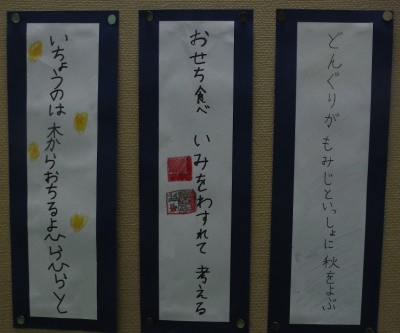 どんぐりが もみじといっしょに 秋をよぶ
おせち食べ いみをわすれて 考える
いちょうのは 木からおちるよ ひらひらと